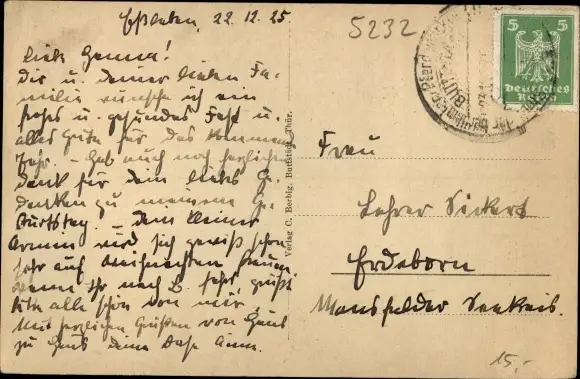 22.12.25
Dir u. Deiner lieben Fa-
milie wünsche ich ein
frohes u. gesundes Fest u.
alles Gute für das kommende
Jahr. - Hab auch noch herzlichen
Dank für Dein liebes Ge-
denken zu meinem Ge-
burtstag. Dein kleiner
wird sich gewiß schon
sehr auf Weihnachten freuen.
Wenn Ihr nach fahrt, grüßt
bitte alle schön von mir.
Mit herzlichen Grüßen von Haus
zu Haus Deine Base Anna.
Verlag C. Berbig, Buttstädt, Thür.
5232
5 5
Deutsches
Reich
Frau
Lehrer Sickert
Erdeborn
Mansfelder Seekreis.
15,-